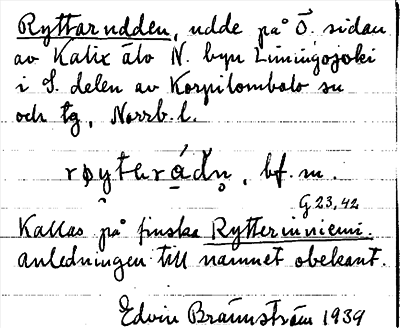 Ryttarudden, udde på Ö. sidan
av Kalix älv N. byn Liningojoki
i S. delen av Korpilombolo sn
och tg, Norrb. l.
bf. m.
G 23,42
Kallas på finska Rytterinniemi.
anledningen till namnet obekant.
Edvin Brännström 1939